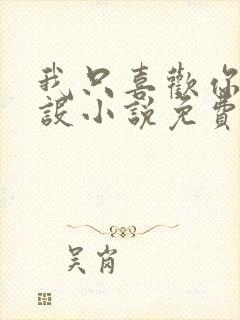 我只喜歡你
設小說免費
吴肖